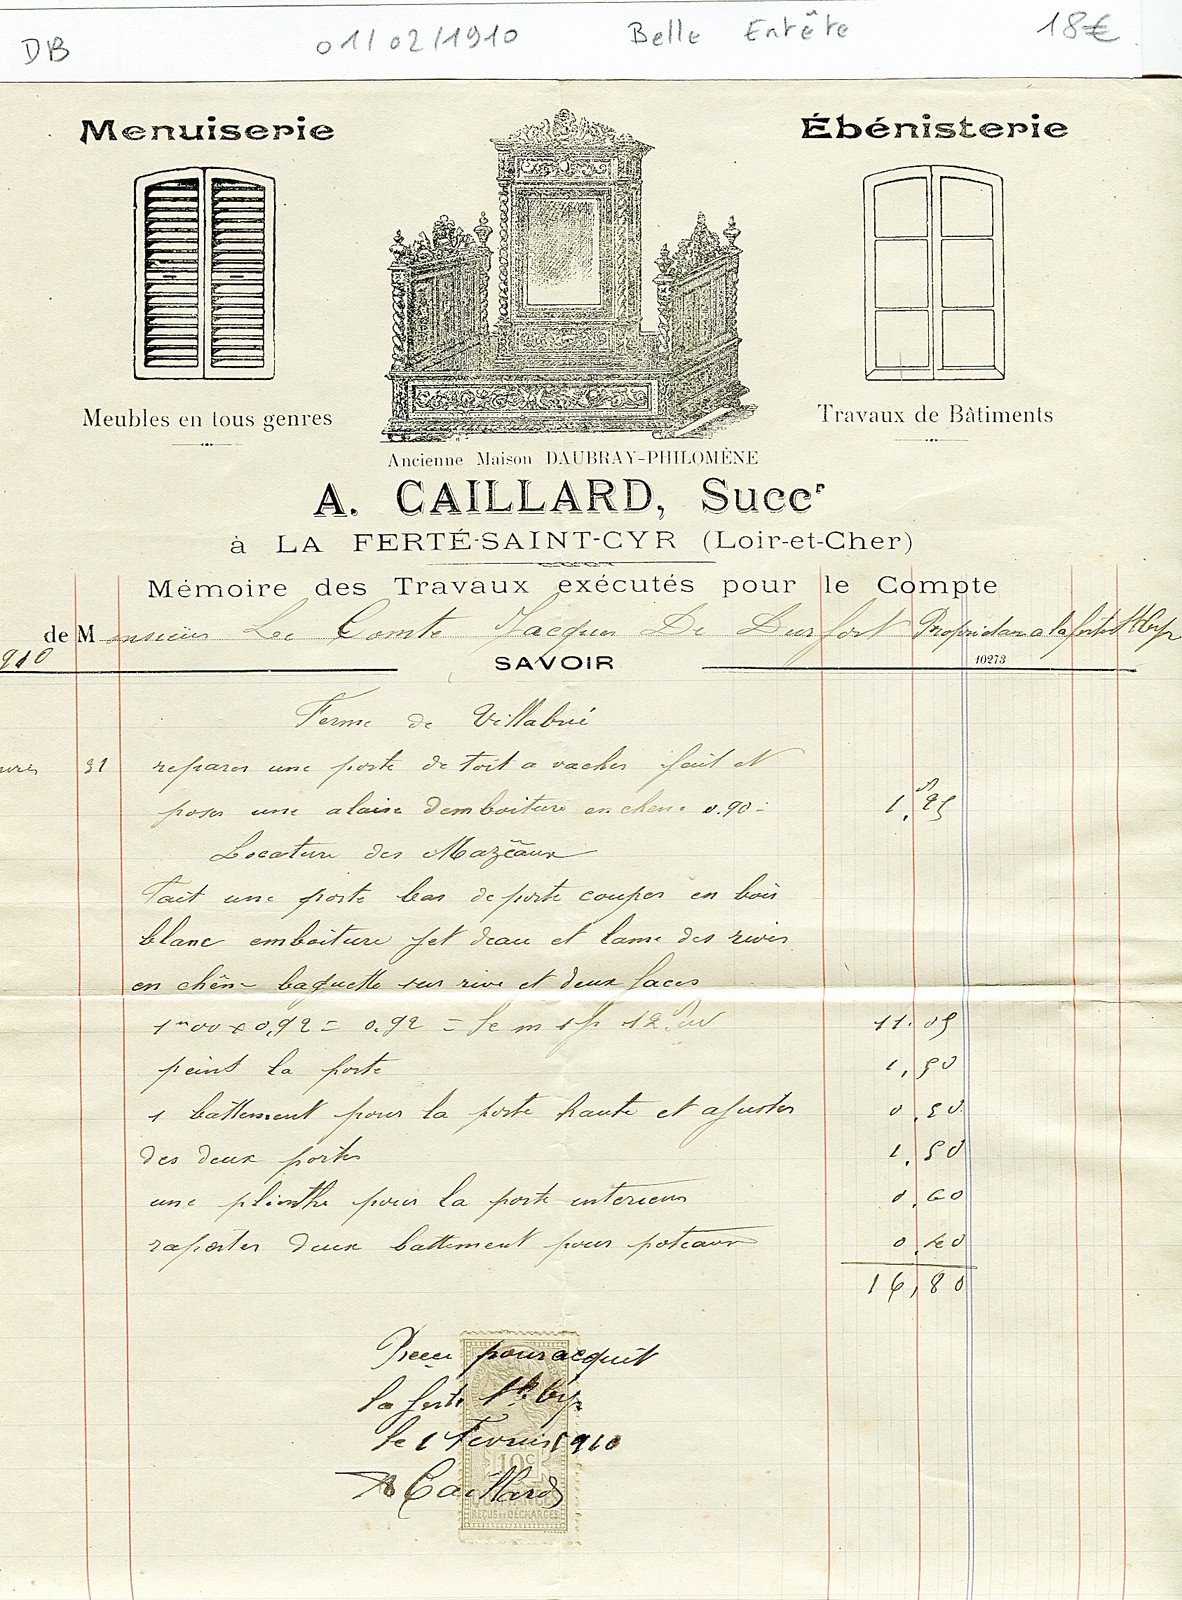 DB 01/02/1910 Belle Entête 18€
Menuiserie
Ébénisterie
Meubles en tous genres
Travaux de Bâtiments
Ancienne Maison DAUBRAY-PHILOMÈNE
A. CAILLARD, Succr
à LA FERTÉ-SAINT-CYR (Loir-et-Cher)
Mémoire des Travaux exécutés pour le Compte
de Monsieur Le Comte Jacques De Durfort
910
SAVOIR
10273
Ferme de Villabrié
31 reparer une porte de toit a vaches fait et
poser une alaise demboiture en chene 0.90 1,25
Locature des Mazeaux
Fait une porte bas de porte couper en bois
blanc emboiture jet deau et lame des rives
en chêne baguette sur rive et deux faces
1m00 x 0,92 = 0,92 = le m 12 11.05
peint la porte 1,50
1 battement pour la porte haute et ajuster 0,50
des deux portes 1,50
une plinthe pour la porte interieur 0,60
raporter deux battement pour poteaux 0,40
16,80
pour acquit
la ferte St Cyr
le 1 Fevrier 1910
A Caillard
10c
QUITTANCES
REÇUS ET DÉCHARGES